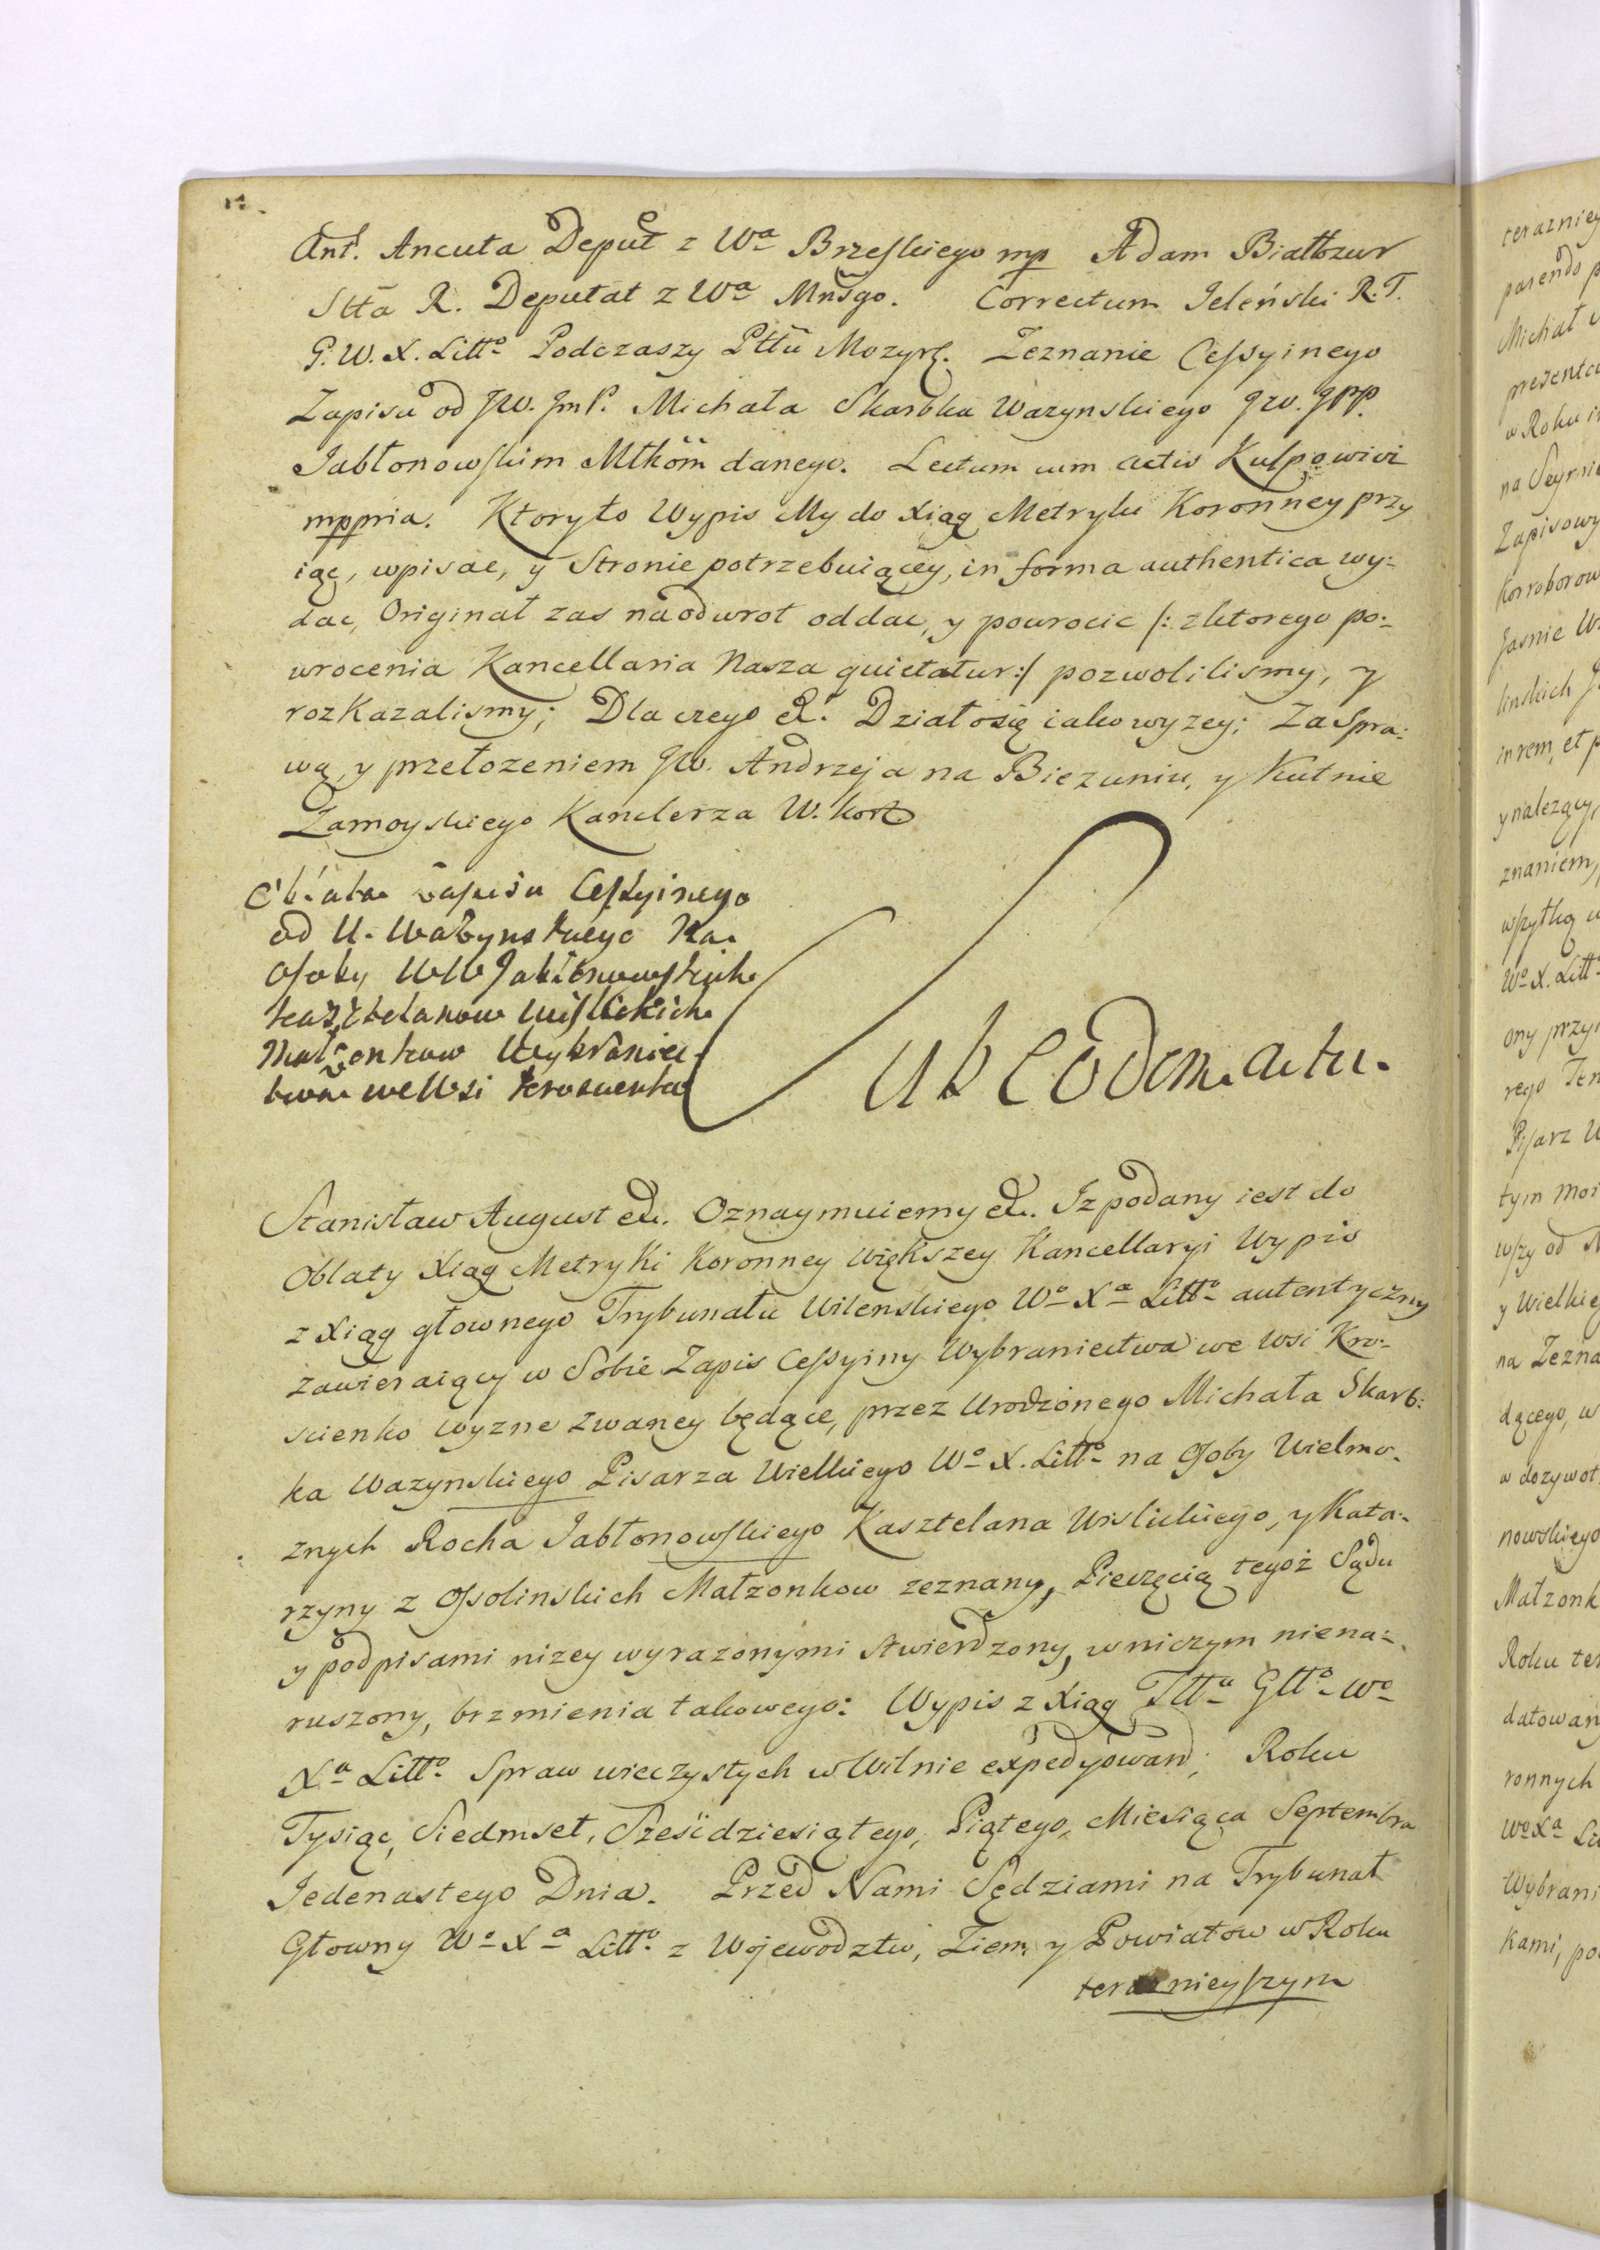 12.
Ant. Ancuta Deput z Wa Brzeskiego mp Adam Białłozur
Stta R. Deputat z Wa Mnsgo. Correctum Jeleński R. T.
G. W. X. Litto Podczaszy Pttu Mozyrs. Zeznanie Cessyinego
Zapisu od JW. JmP. Michała Skarbka Wazynskiego JW. JPP.
Jabłonowskim Młkom danego. Lectum cum actis
mppria. Ktoryto Wypis My do Xiąg Metryki Koronney przy
iąc, wpisac, y Stronie potrzebuiącey, in forma authentica wy-
dac, Originał zas naodwrot oddac, y powrocic /: zktorego po-
wrocenia Kancellaria Nasza quietatur:/ pozwolilismy, y
rozkazalismy; Dla czego etc. Działosię iako wyzey; Za Spra-
wą, y przełozeniem JW. Andrzeja na Biezuniu, y Kutnie
Zamoyskiego Kanclerza W. Kor.
Oblata Zapisu Cessyinego
od U. Wazynskiego Na
Osoby WW Jabłonowskich
Kasztelanow Wislickich
Małzonkow Wybraniec-
twa we Wsi Kroscienko
Sub eodem actu.
Stanisław August etc. Oznaymuiemy etc. Iz podany iest do
Oblaty Xiąg Metryki Koronney większey Kancellaryi Wypis
z Xiąg głownego Trybunału Wilenskiego Wo Xa Litto autentyczny
zawieraiący w Sobie Zapis Cessyiny Wybraniectwa we Wsi Kro-
scienko wyzne zwaney będące, przez Urodzonego Michała Skarb-
ka Wazynskiego Pisarza Wielkiego Wo X. Litto na Osoby Wielmo-
znych Rocha Jabłonowskiego Kasztelana Wislickiego, y Kata-
rzyny z Ossolinskich Małzonkow zeznany, Pieczęcią tegoż Sądu
y podpisami nizey wyrazonymi stwierdzony, wniczym niena-
ruszony, brzmienia takowego: Wypis z Xiąg Ttta Gtto Wo
Xa Litto Spraw wieczystych w Wilnie expedyowan; Roku
Tysiąc, Siedmset, Szescdziesiątego, Piątego, Miesiąca Septembra
Jedenastego Dnia. Przed Nami Sędziami na Trybunał
Głowny Wo Xa Litto z Wojewodztw, Ziem, y Powiatow w Roku
teraznieyszym
terazniey
parendo p
Michał
prezento
w Roku
na Seym
Zapisowy
Korroborow
Jasnie W
linskich
in rem, et p
y nalezący
znaniem,
wszytką
Wo X. Litto
ony przy
rego
Pisarz W
tym
wszy od
y Wielkie
na Zezna
dącego, w
w dozywot
nowskiego
Małzonk
Roku ter
datowan
ronnych
Wo Xa Li
Wybrani
kami, po